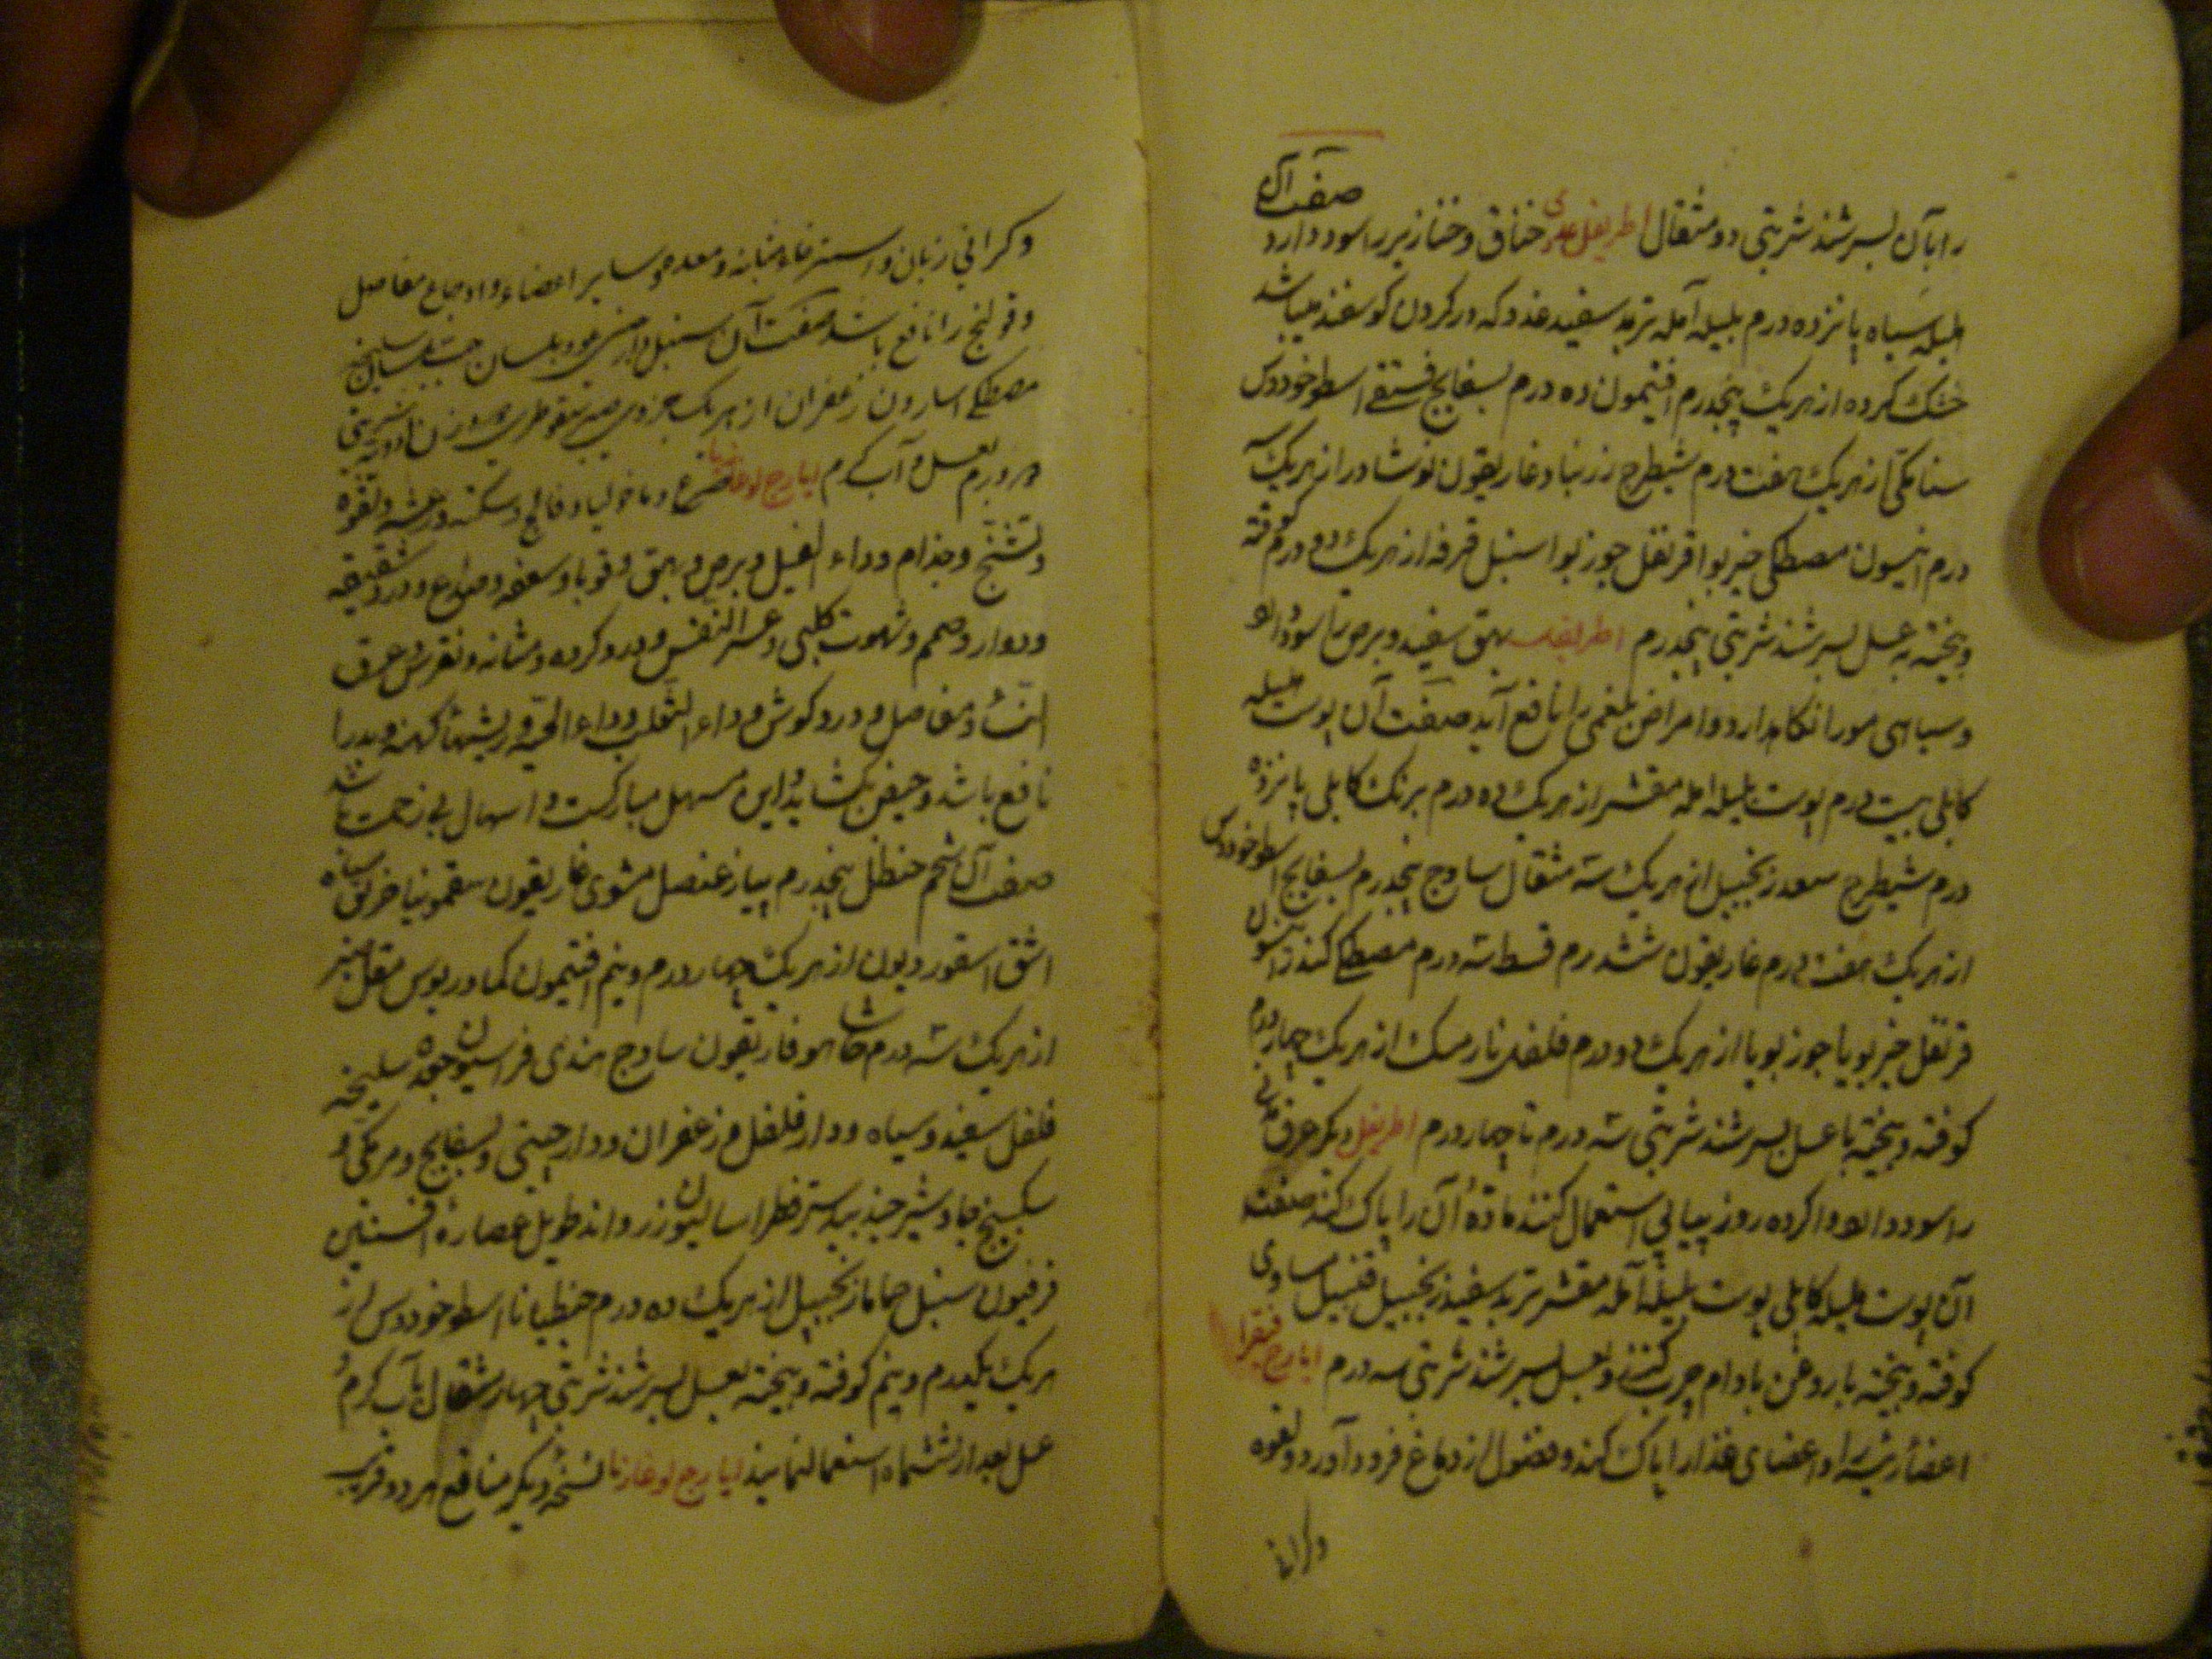 را بآن بسرشند شربتی دو مثقال اطریفل غددی خناق و خنازیر را سود دارد صفت آن
هلیله سیاه پانزده درم بلیله آمله تربد سفید غدد که در کردن کوسفند میباشد
خشک کرده از هریک پنجدرم افتیمون ده درم بسفایج فستقی اسطوخودوس
سنا مکی از هریک هفت درم شیطرج زرنباد غاریقون نوشادر از هریک
درم انیسون مصطکی خیربوا قرنفل جوزبوا سنبل قرفه از هریک دو درم کوفته
و بیخته به عسل بسرشند شربتی پنجدرم اطریفل بهق سفید و برص را سود دهد
و سیاهی مو را نکاه دارد و امراض بلغمی را نافع آید صفت آن پوست هلیله
کابلی بیست درم پوست بلیله امله مقشر از هریک ده درم برنک کابلی پانزده
درم شیطرج سعد زنجبیل از هریک سه مثقال ساذج پنجدرم بسفایج اسطوخودوس
از هریک هفت درم غاریقون ششدرم قسط سه درم مصطکی کندر انیسون
قرنفل خیربویا جوزبویا از هریک دو درم فلفل نارمسک از هریک چهاردرم
کوفته و بیخته با عسل بسرشند شربتی سه درم تا چهاردرم اطریفل دیکر عرق مدنی
را سود دهد و اکر ده روز پیاپی استعمال کنند ماده آن را پاک کند صفت
آن پوست هلیله کابلی پوست بلیله آمله مقشر تربد سفید زنجبیل قنبیل مساوی
کوفته و بیخته با روغن بادام چرب کنند و بعسل بسرشند شربتی سه درم ایارج فیقرا
اعضاء رئیسه و اعضای غذا را پاک کند و فضول از دماغ فرود آورد و لقوه
و کرانی
و کرانی زبان و استرخاء مثانه و معده و سایر اعضاء و اوجاع مفاصل
و قولنج را نافع باشد صفت آن سنبل دارچینی عود بلسان حب بلسان سلیخه
مصطکی اسارون زعفران از هریک جزوی صبر سقوطری دو وزن ادویه شربتی
دو درم بعسل و آب کرم ایارج لوغاذیا صرع و ماخولیا و فالج و سکته و رعشه و لقوه
و تشنج و جذام و داء الفیل و برص و بهق و قوبا و سعفه و صداع و درد شقیقه
و دوار و صمم و شهوت کلبی و عسر النفس و درد کرده و مثانه و نقرس و عرق
النسا و مفاصل و درد کوش و داء الثعلب و داء الحیه و ریشهای کهنه و بد را
نافع باشد و حیض بکشاید و این مسهل مبارکست و اسهال بی زحمت باشد
صفت آن شحم حنظل پنجدرم پیاز عنصل مشوی غاریقون سقمونیا خربق سیاه
اشق اسقوردیون از هریک چهار درم و نیم افتیمون کمادریوس مقل صبر
از هریک سه درم حاشا هوفاریقون ساذج هندی فراسیون جعده سلیخه
فلفل سفید و سیاه و دارفلفل و زعفران و دارچینی و بسفایج و مر مکی و
سکبینج جاوشیر جندبیدستر فطراسالیون زرواند طویل عصاره افسنتین
فرفیون سنبل حماما زنجبیل از هریک ده درم جنطیانا اسطوخودوس از
هریک یکدرم و نیم کوفته و بیخته بعسل بسرشند شربتی چهار مثقال بآب کرم و
عسل بعد از ششماه استعمال نمایند ایارج لوغاذیا نسخه دیکر منافع هر دو قریب